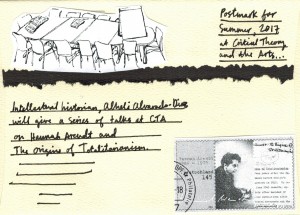 Postmark for
Summer, 2017
at Critical Theory
and the Arts...
Intellectual historian,
will give a series of talks at CTA
on Hannah Arendt and
The Origins of Totalitarianism.